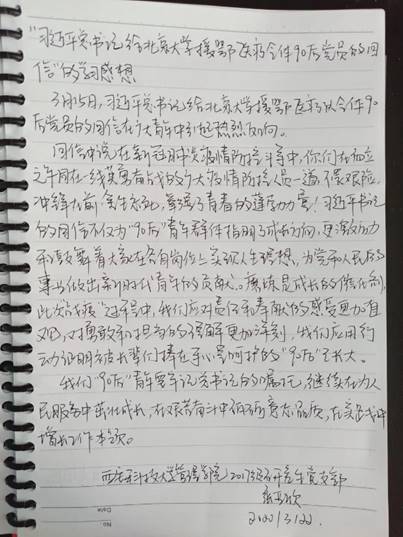 “习近平总书记给北京大学援鄂医疗全体90后党员的回
信”的学习感想
3月15日,习近平总书记给北京大学援鄂医疗队全体90
后党员的回信在广大青年中引起热烈反响。
回信中说在新冠肺炎疫情防控斗争中,你们青年人
同在一线英勇奋战的广大疫情防控人员一道,不畏艰险、
冲锋在前、舍生忘死,彰显了青春的蓬勃力量!习近平总书记
的回信不仅为“90后”青年群体指明了成长方向,更激励
和鼓舞着大家在各自岗位上实现人生理想,为党和人民的
事业做出新时代青年的贡献。磨练是成长的催化剂,
此次抗“疫”过程中,我们应对责任和奉献的感受更加直
观,对勇敢和担当的理解更加深刻,我们应用行
动证明被长辈们捧在手心呵护的“90后”已长大。
我们“90后”青年要牢记总书记的嘱托,继续在为人
民服务中茁壮成长,在艰苦奋斗中砥砺意志品质,在实践中
增长工作本领。
西安科技大学管理学院2017级研究生党支部
2020/3/22.
No.
Date